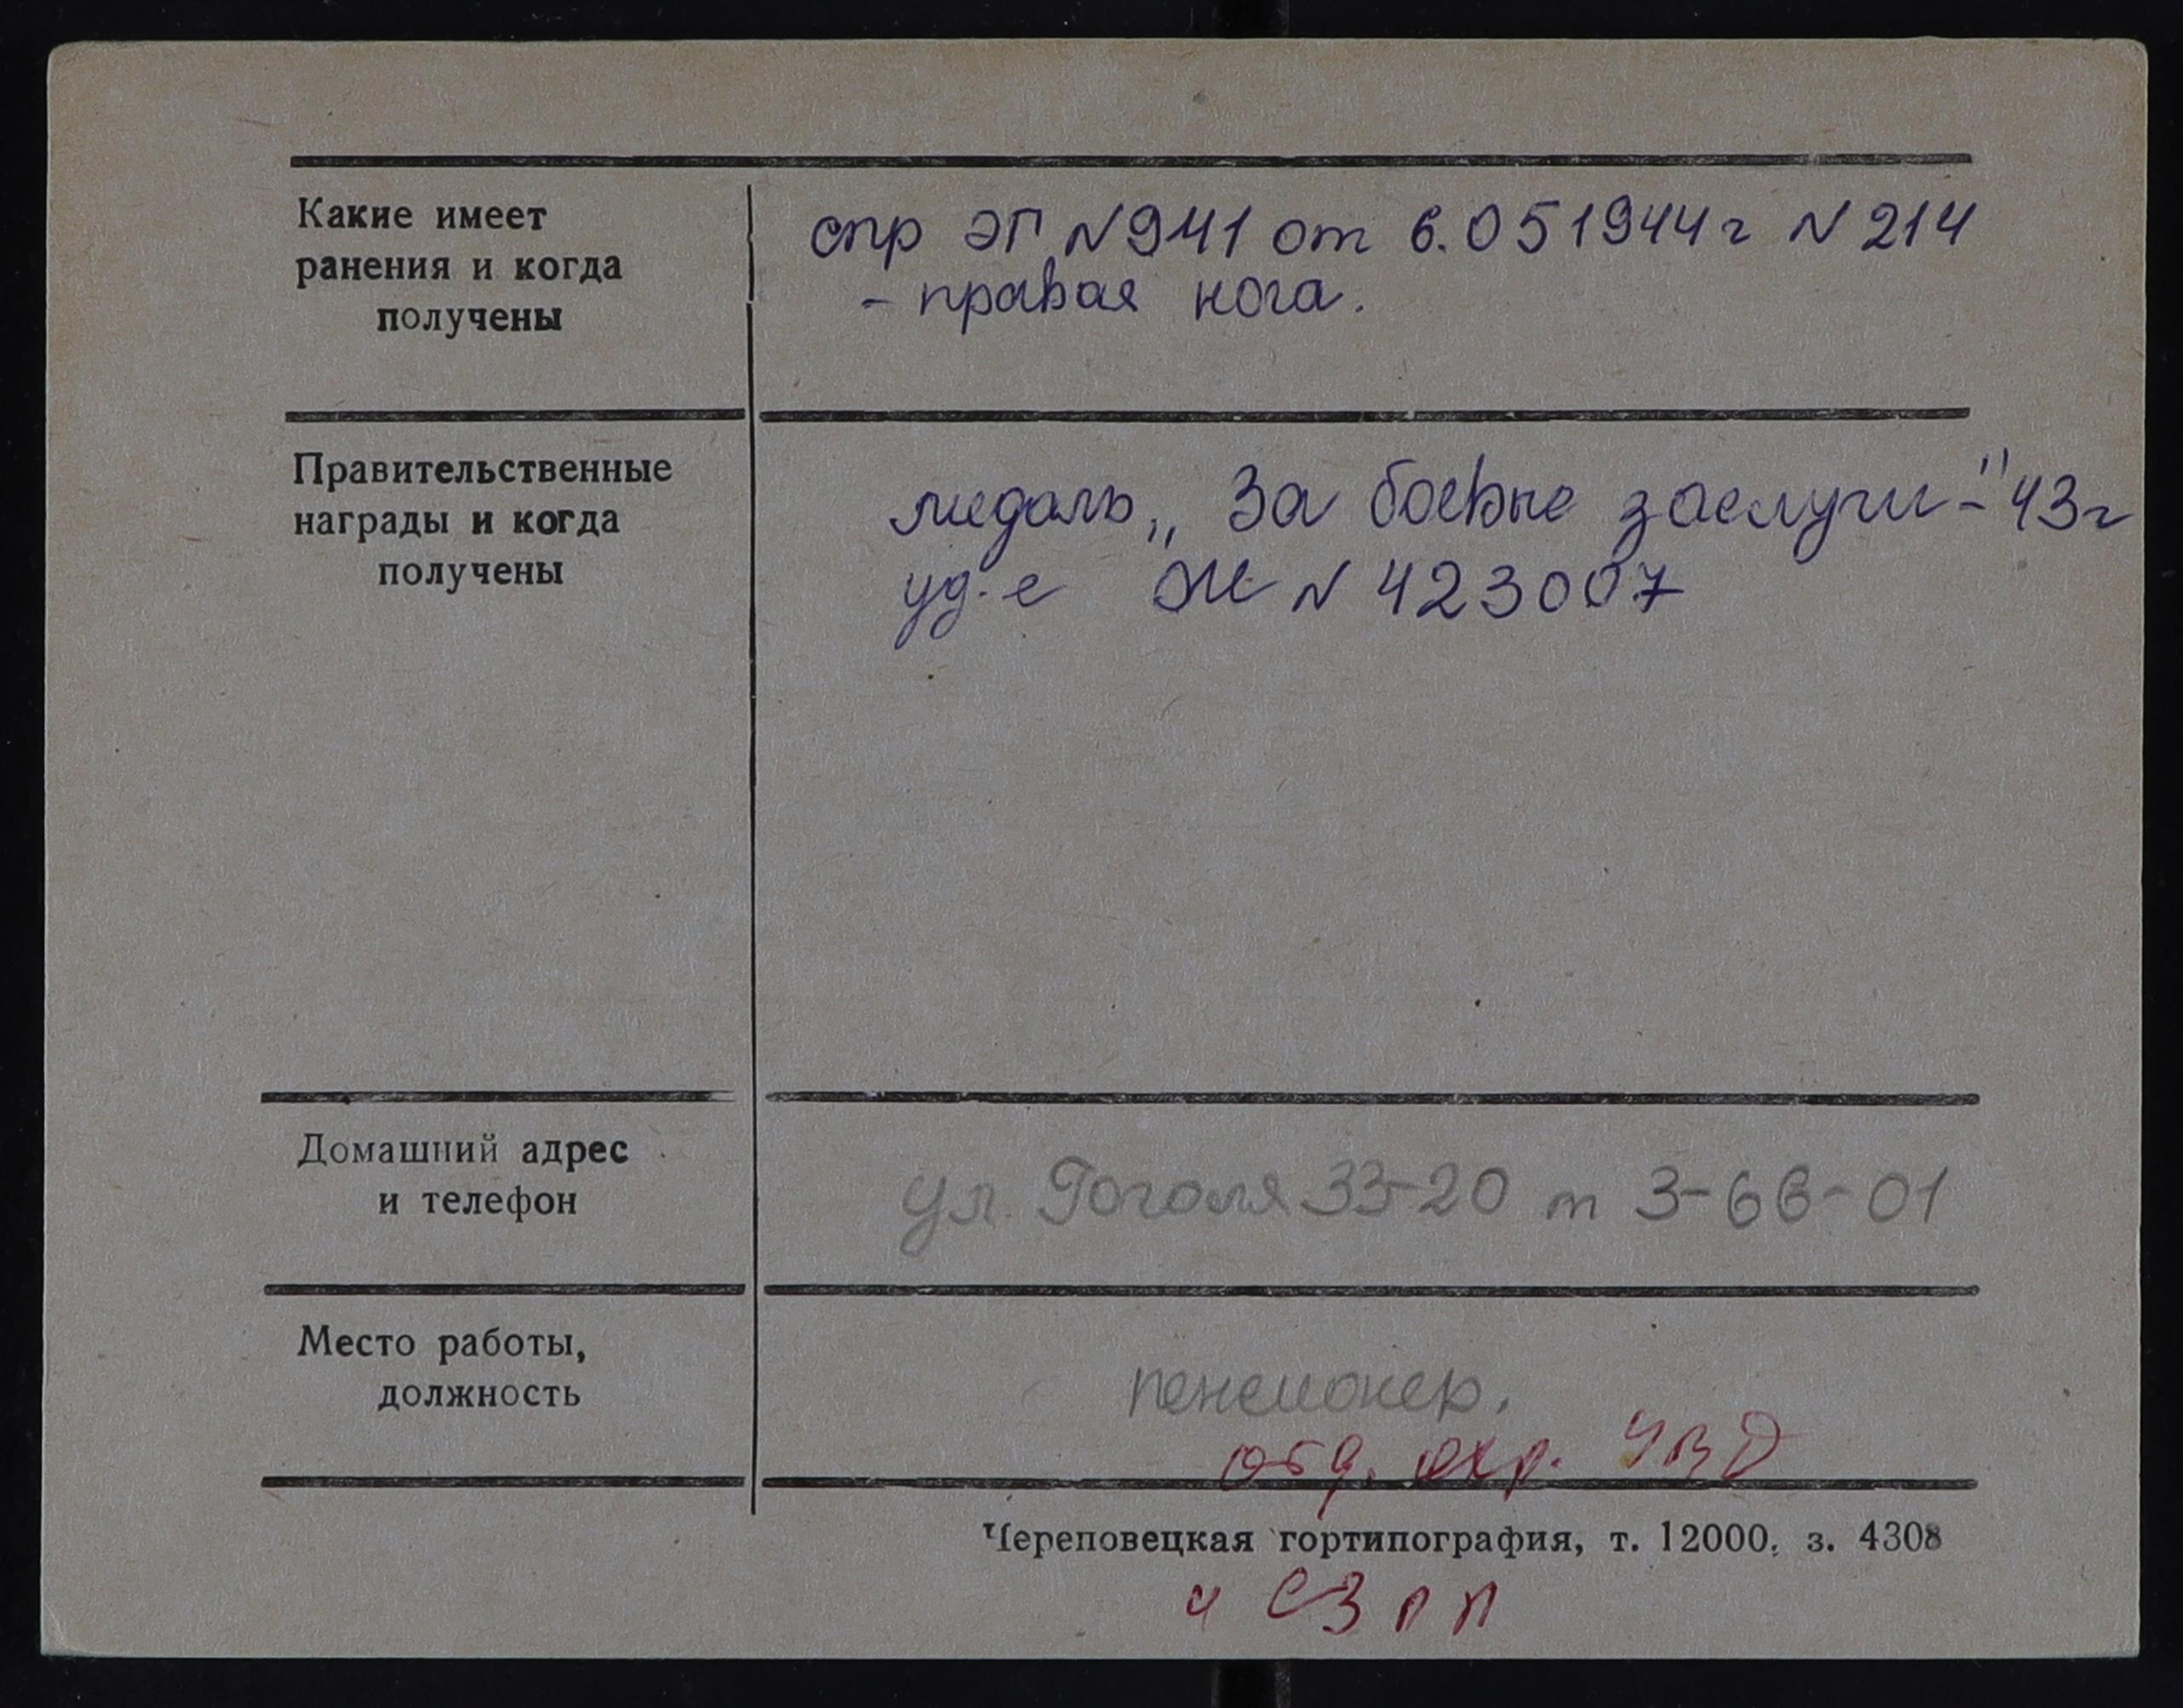 Какие имеет
ранения и когда
получены
спр ЭГ N 941 от 6.05 1944 г N 214
- правая нога.
Правительственные
награды и когда
получены
медаль „За боевые заслуги -" 43 г
уд-е Ж N 423007
Домашний адрес
и телефон
ул. Гоголя 33-20 т 3-66-01
Место работы,
должность
пенсионер.
отд. охр. УВД
Череповецкая гортипография, т. 12000, з. 4308
ч СЗПП